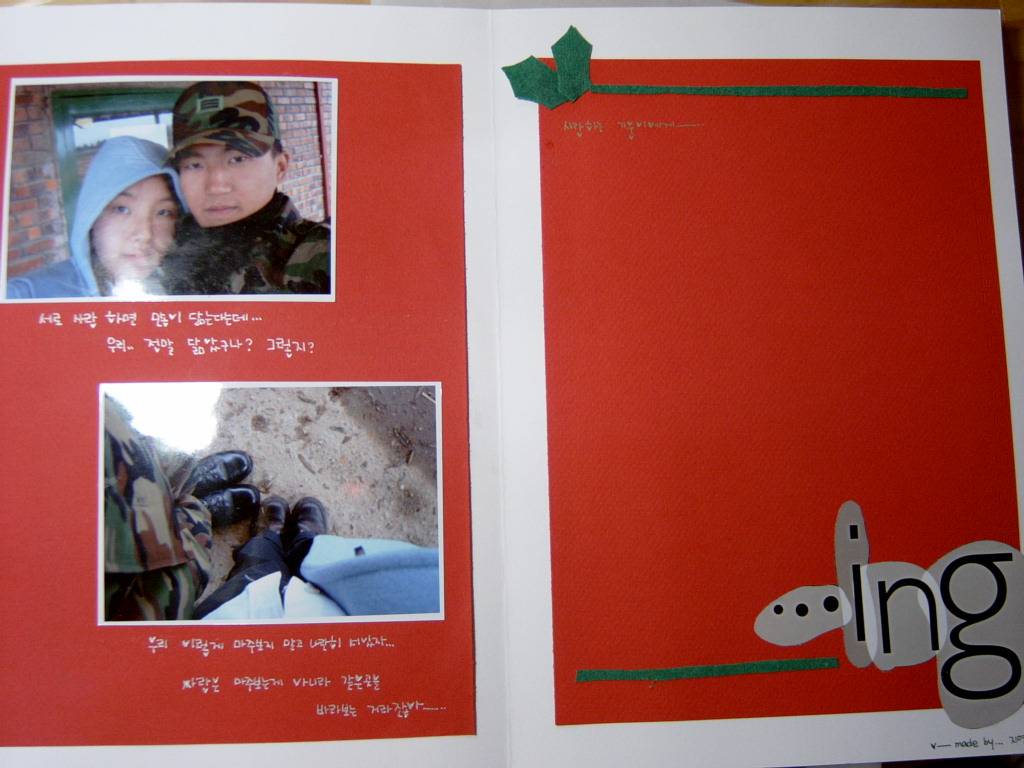 서로 사랑 하면 모습이 닮는다는데...
우리.. 정말 닮았구나? 그렇지?
우리 이렇게 마주보지 말고 나란히 서있자...
사랑은 마주보는게 아니라 같은곳을
바라보는 거라잖아......
사랑하는
...ing
made by...